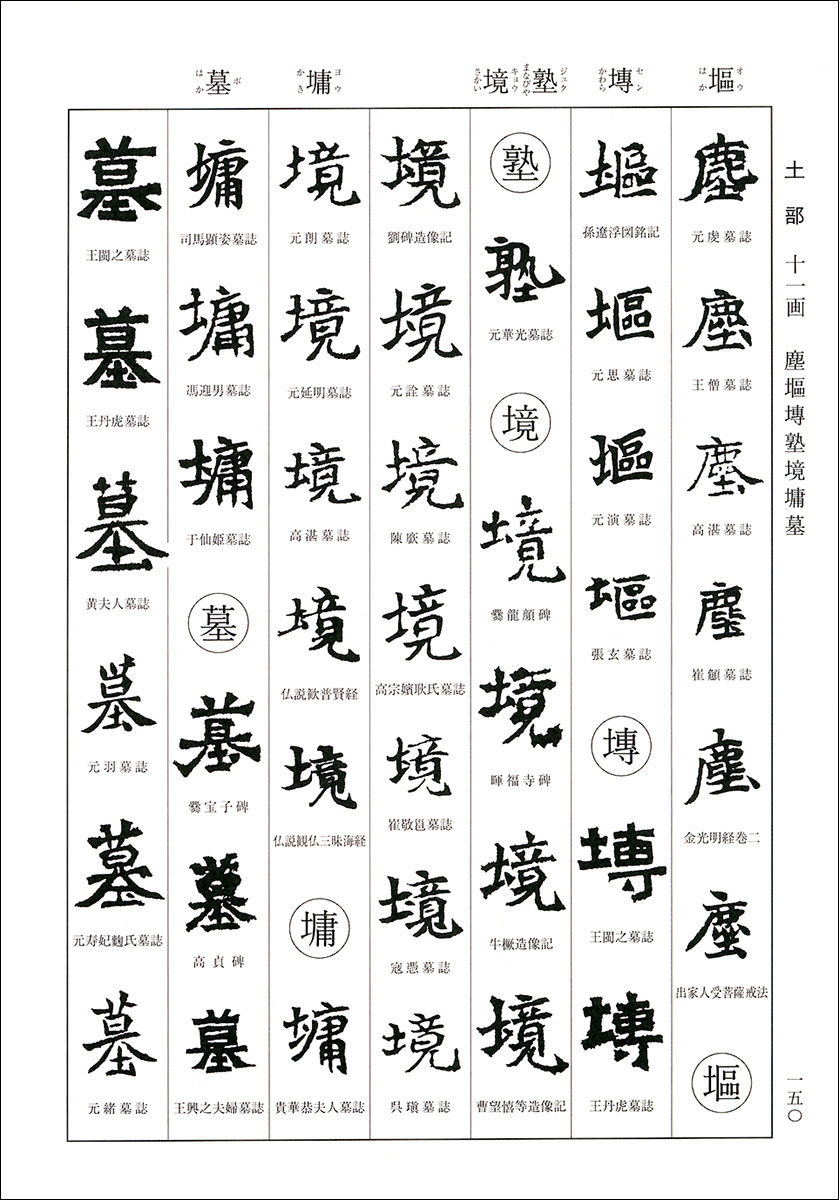 土部 十一画 塵塸塼塾境墉墓
一五〇
塸 オウ はか
塼 セン かわら
塾 ジュク まなびや
境 キョウ さかい
墉 ヨウ かき
墓 ボ はか
塵 元虔墓誌
塵 王僧墓誌
塵 高湛墓誌
塵 崔頠墓誌
塵 金光明経巻二
塵 出家人受菩薩戒法
塸
塸 孫遼浮図銘記
塸 元思墓誌
塸 元演墓誌
塸 張玄墓誌
塼
塼 王閩之墓誌
塼 王丹虎墓誌
塾
塾 元華光墓誌
境
境 爨龍顔碑
境 暉福寺碑
境 牛橛造像記
境 曹望憘等造像記
境 劉碑造像記
境 元詮墓誌
境 陳廞墓誌
境 高宗嬪耿氏墓誌
境 崔敬邕墓誌
境 寇憑墓誌
境 呉瑱墓誌
境 元朗墓誌
境 元延明墓誌
境 高湛墓誌
境 仏説歓普賢経
境 仏説観仏三昧海経
墉
墉 貴華恭夫人墓誌
墉 司馬顕姿墓誌
墉 馮迎男墓誌
墉 于仙姫墓誌
墓
墓 爨宝子碑
墓 高貞碑
墓 王興之夫婦墓誌
墓 王閩之墓誌
墓 王丹虎墓誌
墓 黄夫人墓誌
墓 元羽墓誌
墓 元寿妃麴氏墓誌
墓 元緒墓誌